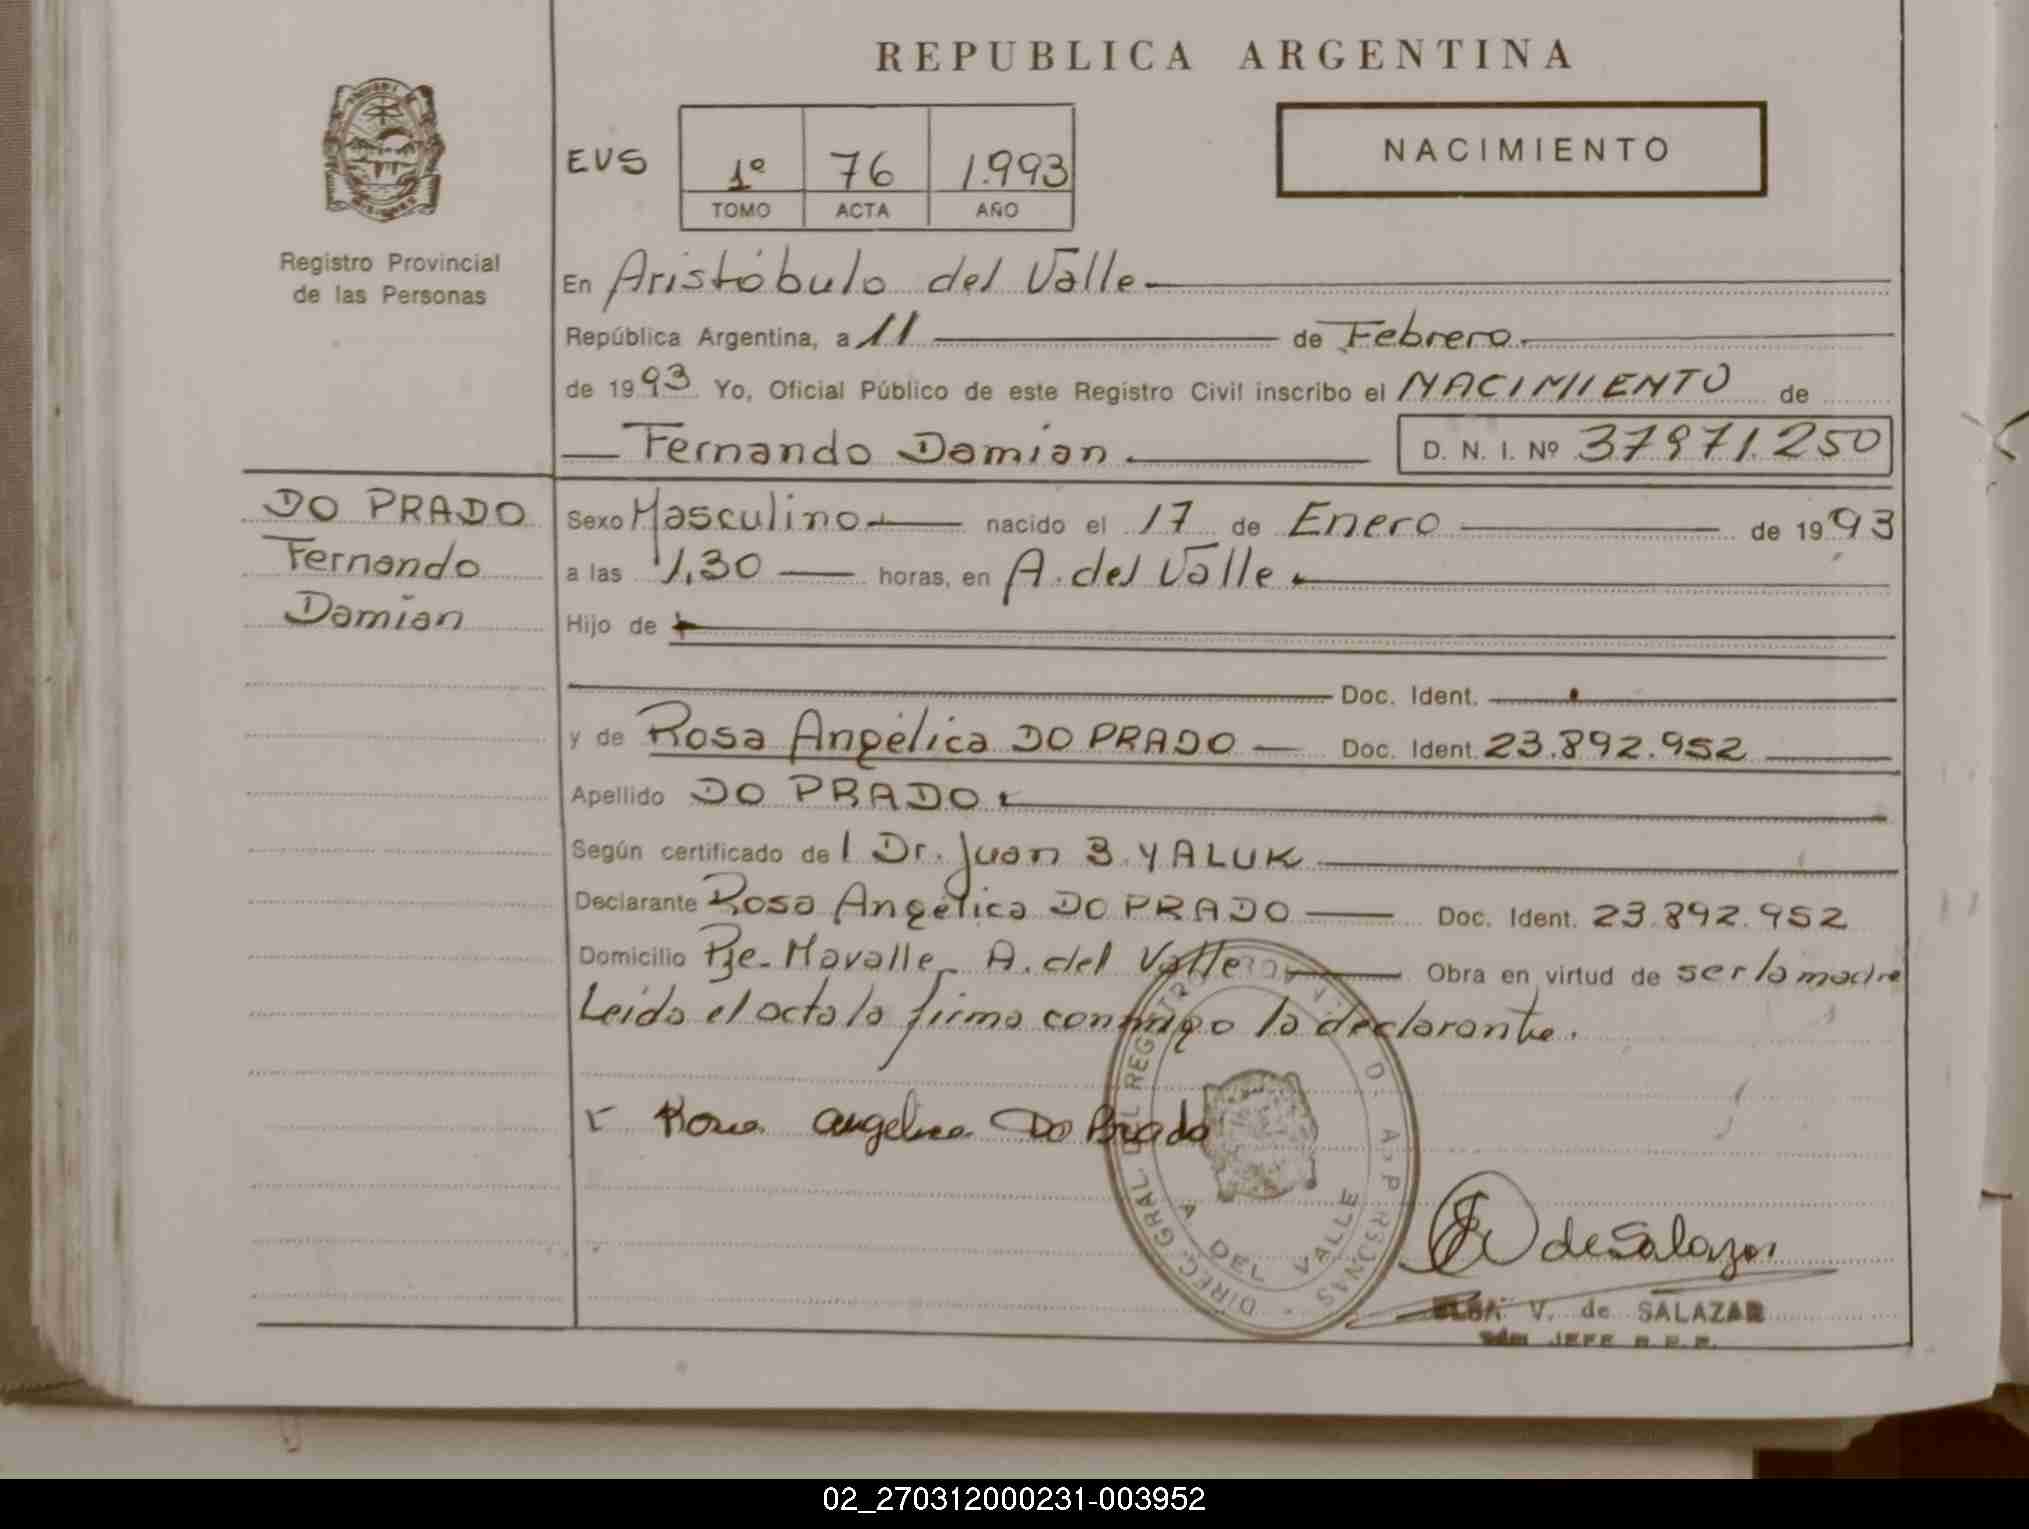 REPUBLICA ARGENTINA
EVS
1º 76 1.993
TOMO ACTA AÑO
NACIMIENTO
Registro Provincial
de las Personas
En Aristóbulo del Valle
República Argentina, a 11 de Febrero
de 1993 Yo, Oficial Público de este Registro Civil inscribo el NACIMIENTO de
Fernando Damian D. N. I. Nº 37971.250
DO PRADO
Fernando
Damian
Sexo Masculino nacido el 17 de Enero de 1993
a las 1,30 horas, en A. del Valle
Hijo de
Doc. Ident.
y de Rosa Angélica DO PRADO Doc. Ident. 23.892.952
Apellido DO PRADO
Según certificado del Dr. Juan B. YALUK
Declarante Rosa Angélica DO PRADO Doc. Ident. 23.892.952
Domicilio Pje. Mavalle A. del Valle Obra en virtud de ser la madre
Leida el acta la firma conmigo la declarante.
Rosa angelica Do Prado
DIREC. GRAL DEL REGISTRO
A. DEL VALLE
de Salazar
ELBA V. de SALAZAR
JEFE R. P. P.
02_270312000231-003952